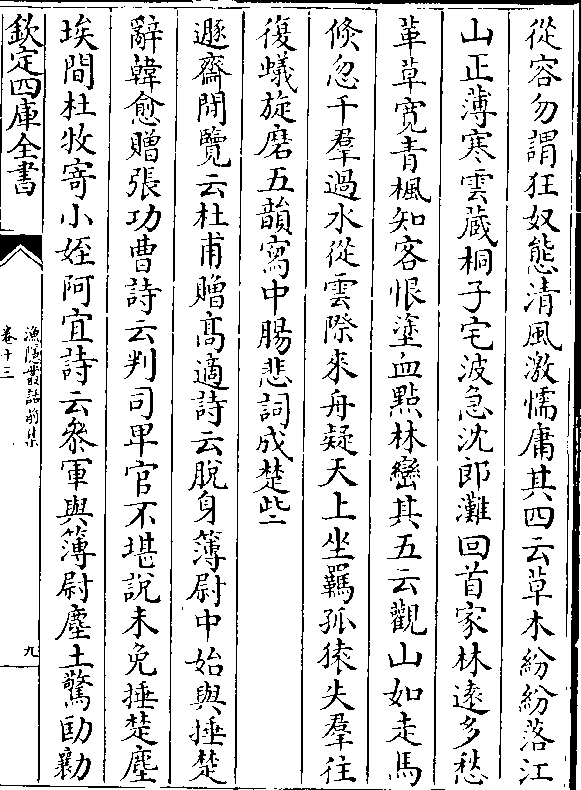 從容勿謂狂奴態清風激懦庸其四云草木紛紛落江
山正薄寒雲藏桐子宅波急沈郎灘回首家林逺多愁
革草寛青楓知客恨塗血點林巒其五云觀山如走馬
倐忽千羣過水從雲際來舟疑天上坐羈孤猿失羣往
復蟻旋磨五韻寫中腸悲詞成楚些
遯齋閒覽云杜甫贈髙適詩云脫身簿尉中始與捶楚
辭韓愈贈張功曹詩云判司卑官不堪說未免捶楚塵
埃間杜牧寄小姪阿宜詩云叅軍與簿尉塵土驚劻勷
欽定四庫全書
漁隠叢話前集
卷十三
九